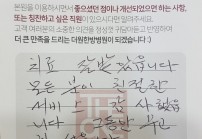 본원을 이용하시면서 좋았던 점이나 개선되었으면 하는 사항,
또는 칭찬하고 싶은 직원이 있으시다면 알려주세요.
고객 여러분의 소중한 의견을 정성껏 귀담아듣고 반영하여
더 큰 만족을 드리는 더원한방병원이 되겠습니다 :)
치료 잘받았습니다
모든 분이 친절한
서비스 감사했습
니다